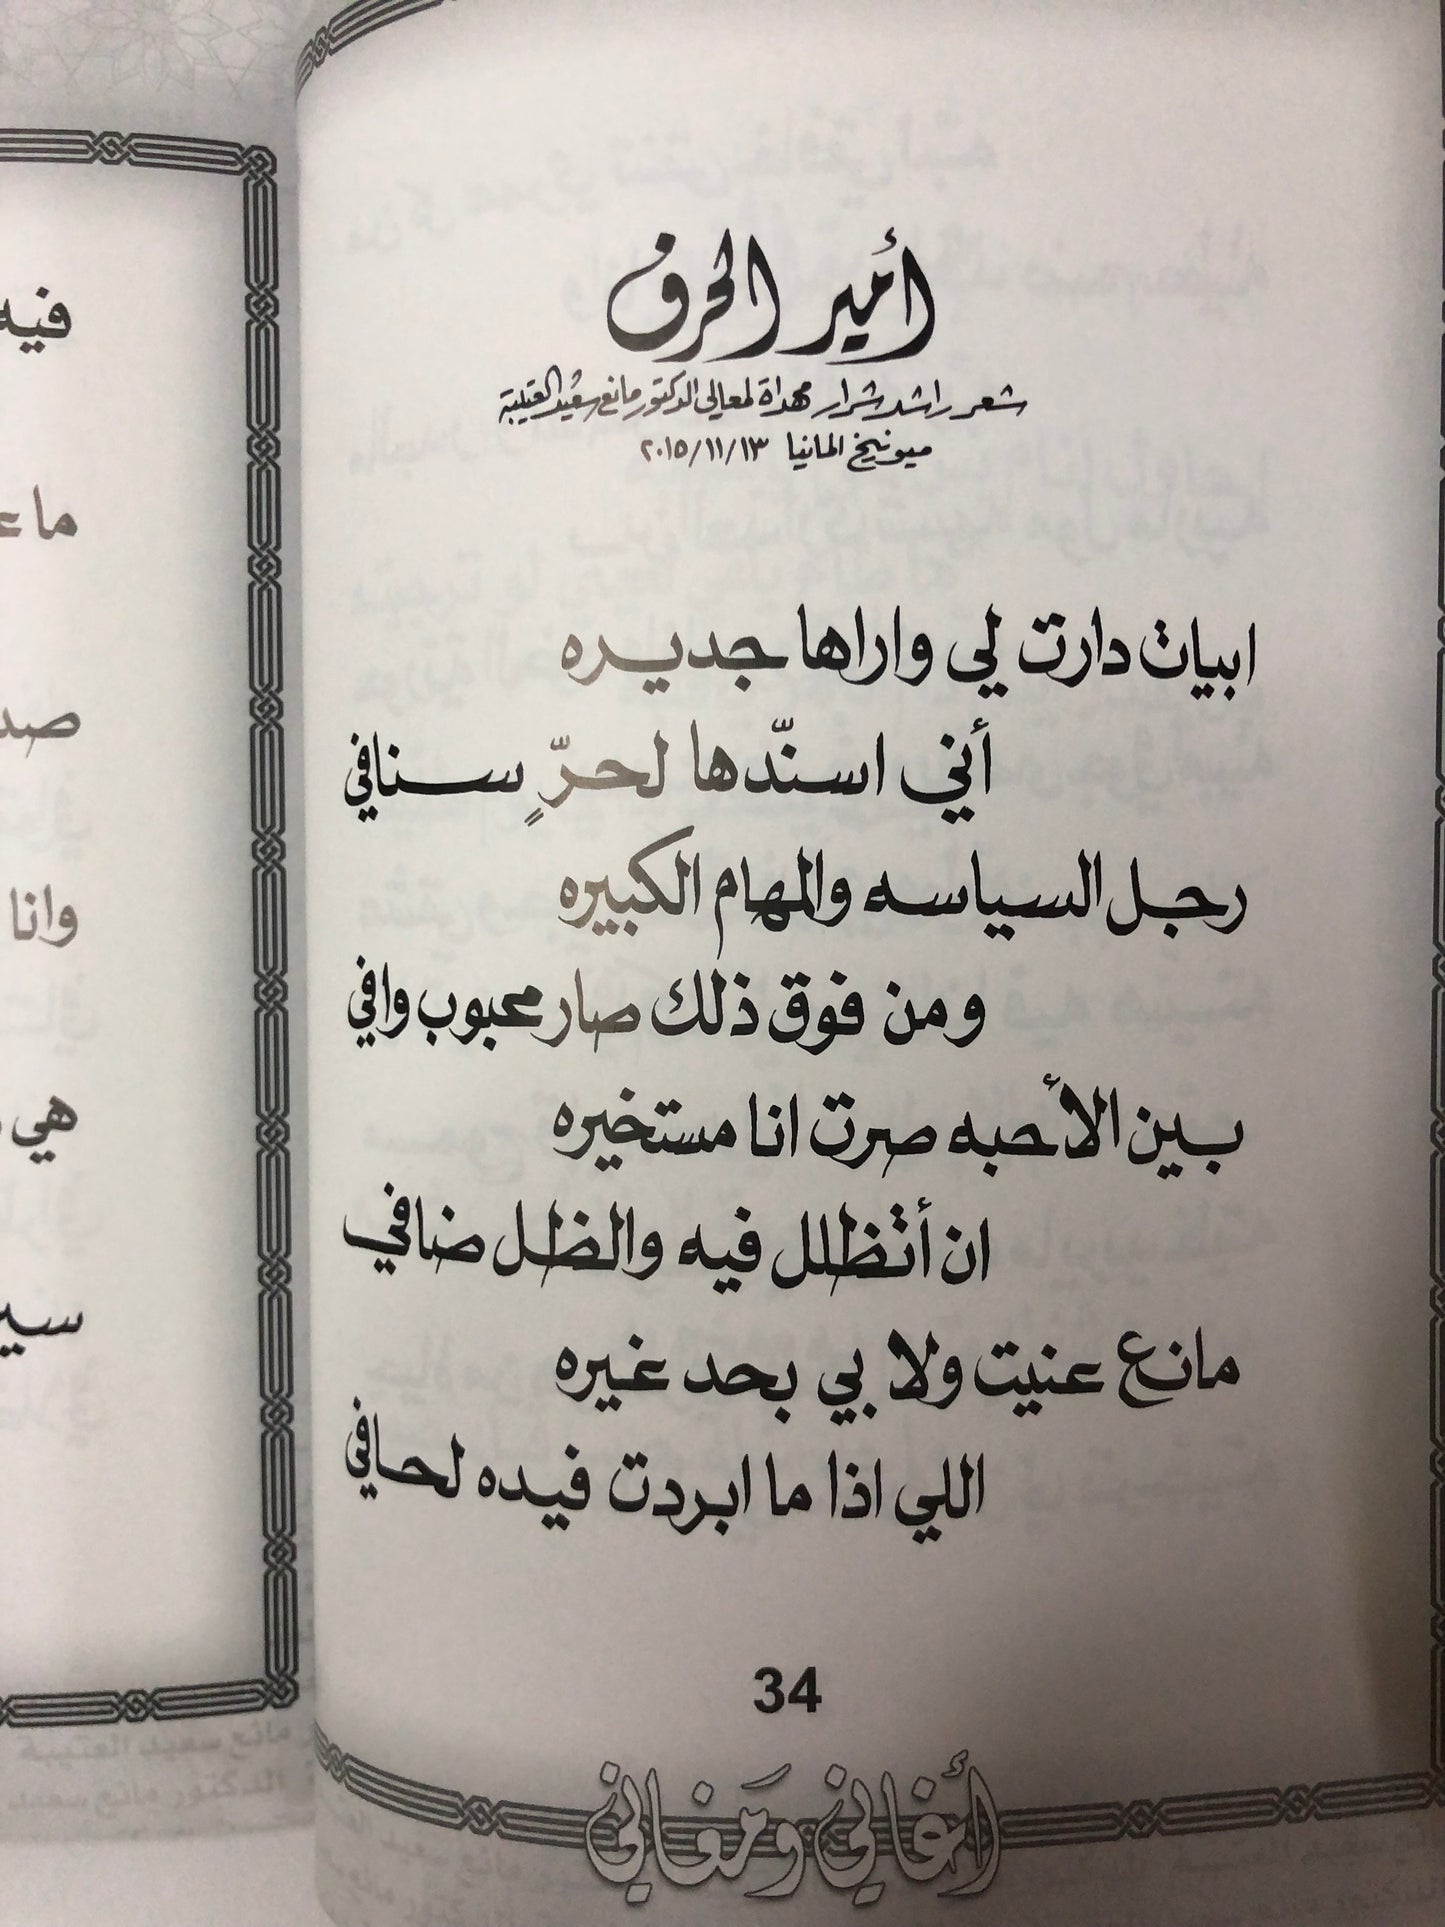 أمير الحرف
شعر راشد شرار مهداة لمعالي الدكتور مانع سعيد العتيبة
ميونيخ المانيا ٢٠١٥/١١/١٣
ابيات دارت لي واراها جديره
أني اسندّها لحرٍّ سنافي
رجل السياسه والمهام الكبيره
ومن فوق ذلك صار محبوب وافي
بين الأحبه صرت انا مستخيره
ان أتظلل فيه والظل ضافي
مانع عنيت ولا بي بحد غيره
اللي اذا ما ابردت فيده لحافي
34
أغاني ومَغاني
فيه
وانا